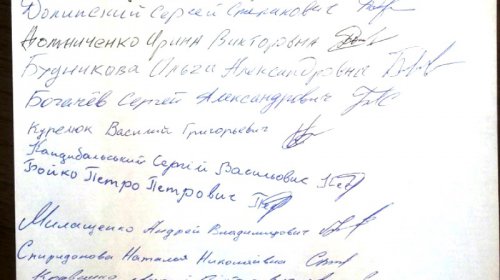 Долинский Сергей Степанович
Ирина Викторовна
Будникова Ольга Александровна
Богачёв Сергей Александрович
Курелюк Василий Григорьевич
Сергій Васильович
Бойко Петро Петрович
Милащенко Андрей Владимирович
Спиридонова Наталья Николаевна